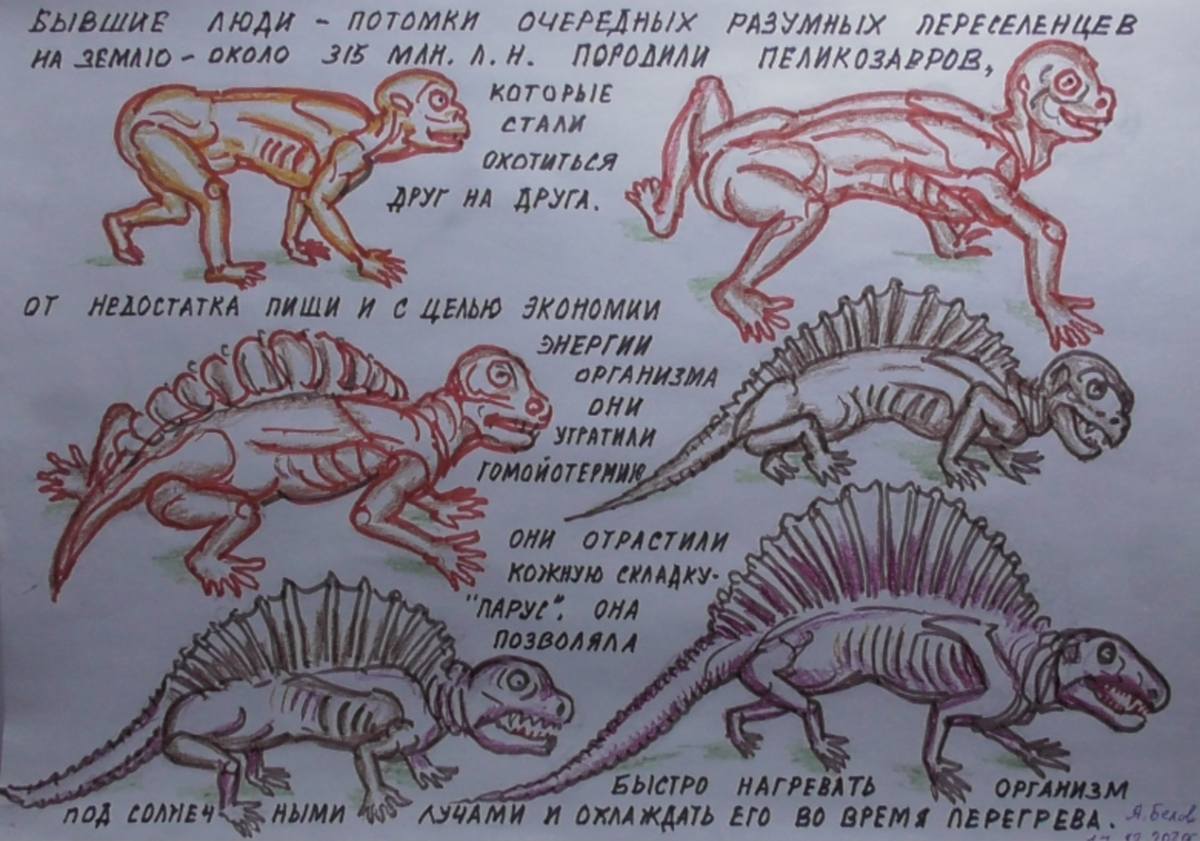 БЫВШИЕ ЛЮДИ - ПОТОМКИ ОЧЕРЕДНЫХ РАЗУМНЫХ ПЕРЕСЕЛЕНЦЕВ
НА ЗЕМЛЮ - ОКОЛО 315 МЛН. Л. Н. ПОРОДИЛИ ПЕЛИКОЗАВРОВ,
КОТОРЫЕ
СТАЛИ
ОХОТИТЬСЯ
ДРУГ НА ДРУГА.
ОТ НЕДОСТАТКА ПИЩИ И С ЦЕЛЬЮ ЭКОНОМИИ
ЭНЕРГИИ
ОРГАНИЗМА
ОНИ
УТРАТИЛИ
ГОМОЙОТЕРМИЮ
ОНИ ОТРАСТИЛИ
КОЖНУЮ СКЛАДКУ-
"ПАРУС". ОНА
ПОЗВОЛЯЛА
БЫСТРО НАГРЕВАТЬ ОРГАНИЗМ
ПОД СОЛНЕЧ НЫМИ ЛУЧАМИ И ОХЛАЖДАТЬ ЕГО ВО ВРЕМЯ ПЕРЕГРЕВА.
А. Белов